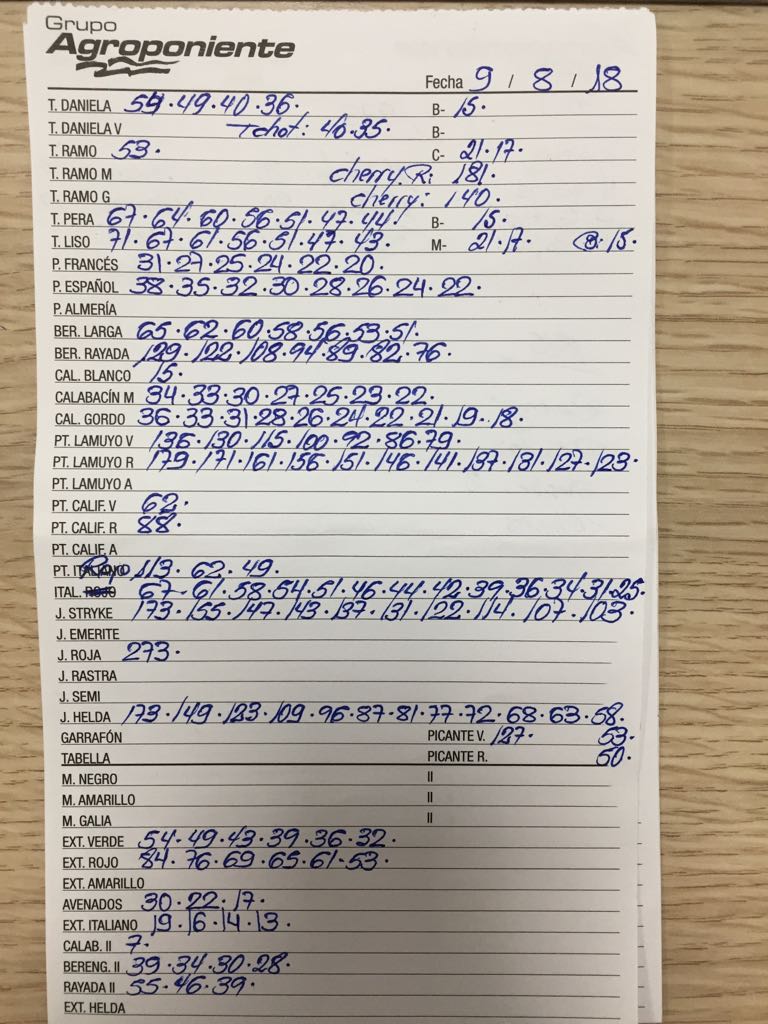 Grupo
Agroponiente
Fecha 9 / 8 / 18
T. DANIELA 54·49·40·36· B- 15·
T. DANIELA V Tchot: 40·35· B-
T. RAMO 53· C- 21·17·
T. RAMO M cherry R: 181·
T. RAMO G cherry: 140·
T. PERA 67·64·60·56·51·47·44· B- 15·
T. LISO 71·67·61·56·51·47·43· M- 21·17· B: 15·
P. FRANCÉS 31·27·25·24·22·20·
P. ESPAÑOL 38·35·32·30·28·26·24·22·
P. ALMERÍA
BER. LARGA 65·62·60·58·56·53·51·
BER. RAYADA 129·122·108·94·89·82·76·
CAL. BLANCO 15·
CALABACÍN M 34·33·30·27·25·23·22·
CAL. GORDO 36·33·31·28·26·24·22·21·19·18·
PT. LAMUYO V 136·130·115·100·92·86·79·
PT. LAMUYO R 179·171·161·156·151·146·141·137·131·127·123·
PT. LAMUYO A
PT. CALIF. V 62·
PT. CALIF. R 88·
PT. CALIF. A
PT. ITALIANO Rojo 113·62·49·
ITAL. ROJO 67·61·58·54·51·46·44·42·39·36·34·31·25·
J. STRYKE 173·155·147·143·137·131·122·114·107·103·
J. EMERITE
J. ROJA 273·
J. RASTRA
J. SEMI
J. HELDA 173·149·123·109·96·87·81·77·72·68·63·58·
GARRAFÓN PICANTE V. 127· 53·
TABELLA PICANTE R. 50·
M. NEGRO II
M. AMARILLO II
M. GALIA II
EXT. VERDE 54·49·43·39·36·32·
EXT. ROJO 84·76·69·65·61·53·
EXT. AMARILLO
AVENADOS 30·22·17·
EXT. ITALIANO 19·16·14·13·
CALAB. II 7·
BERENG. II 39·34·30·28·
RAYADA II 55·46·39·
EXT. HELDA